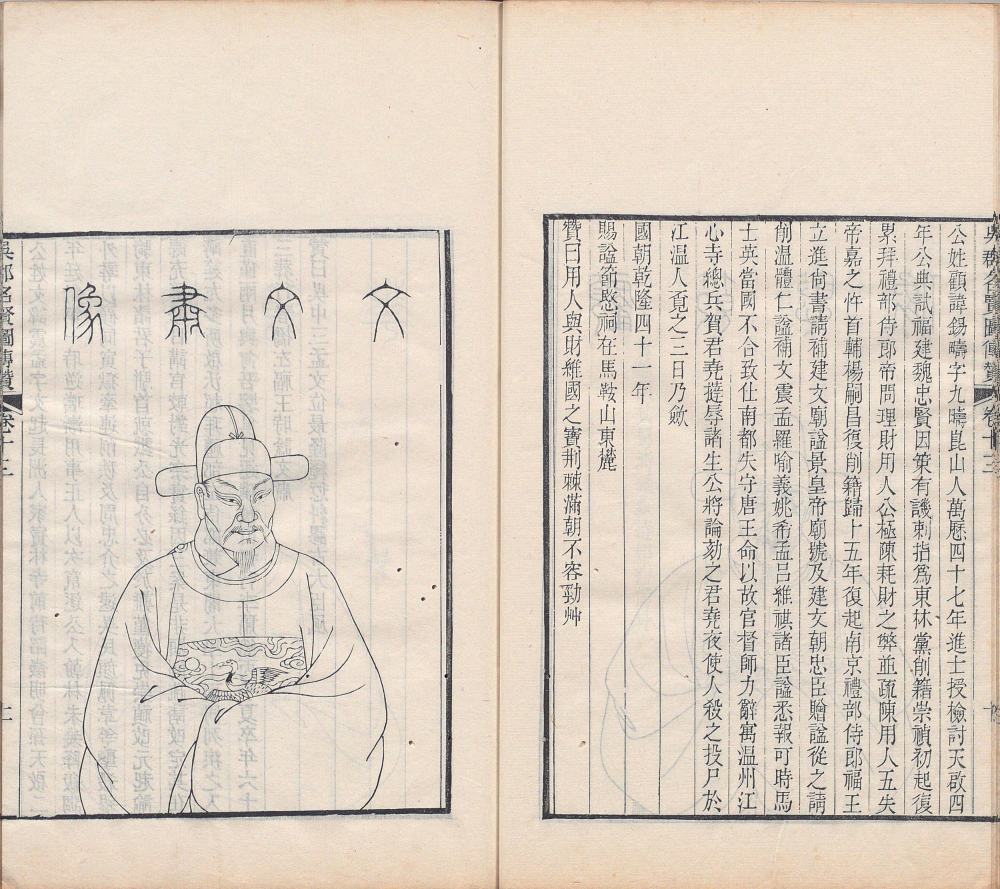 吳郡名賢圖傳贊 卷十三
公姓顧諱錫疇字九疇崑山人萬曆四十七年進士授檢討天啟四
年公典試福建魏忠賢因策有譏刺指爲東林黨削籍崇禎初起復
累拜禮部侍郎帝問理財用人公極陳耗財之弊並疏陳用人五失
帝嘉之忤首輔楊嗣昌復削籍歸十五年復起南京禮部侍郎福王
立進尚書請補建文廟諡景皇帝廟號及建文朝忠臣贈諡從之請
削溫體仁諡補文震孟羅喻義姚希孟呂維祺諸臣諡悉報可時馬
士英當國不合致仕南都失守唐王命以故官督師力辭寓温州江
心寺總兵賀君堯撻辱諸生公將論劾之君堯夜使人殺之投尸於
江温人覓之三日乃歛
國朝乾隆四十一年
賜諡節愍祠在馬鞍山東麓
贊曰用人與財維國之寶荆棘滿朝不容勁艸
文文肅像
吳郡名賢圖傳贊 卷十三